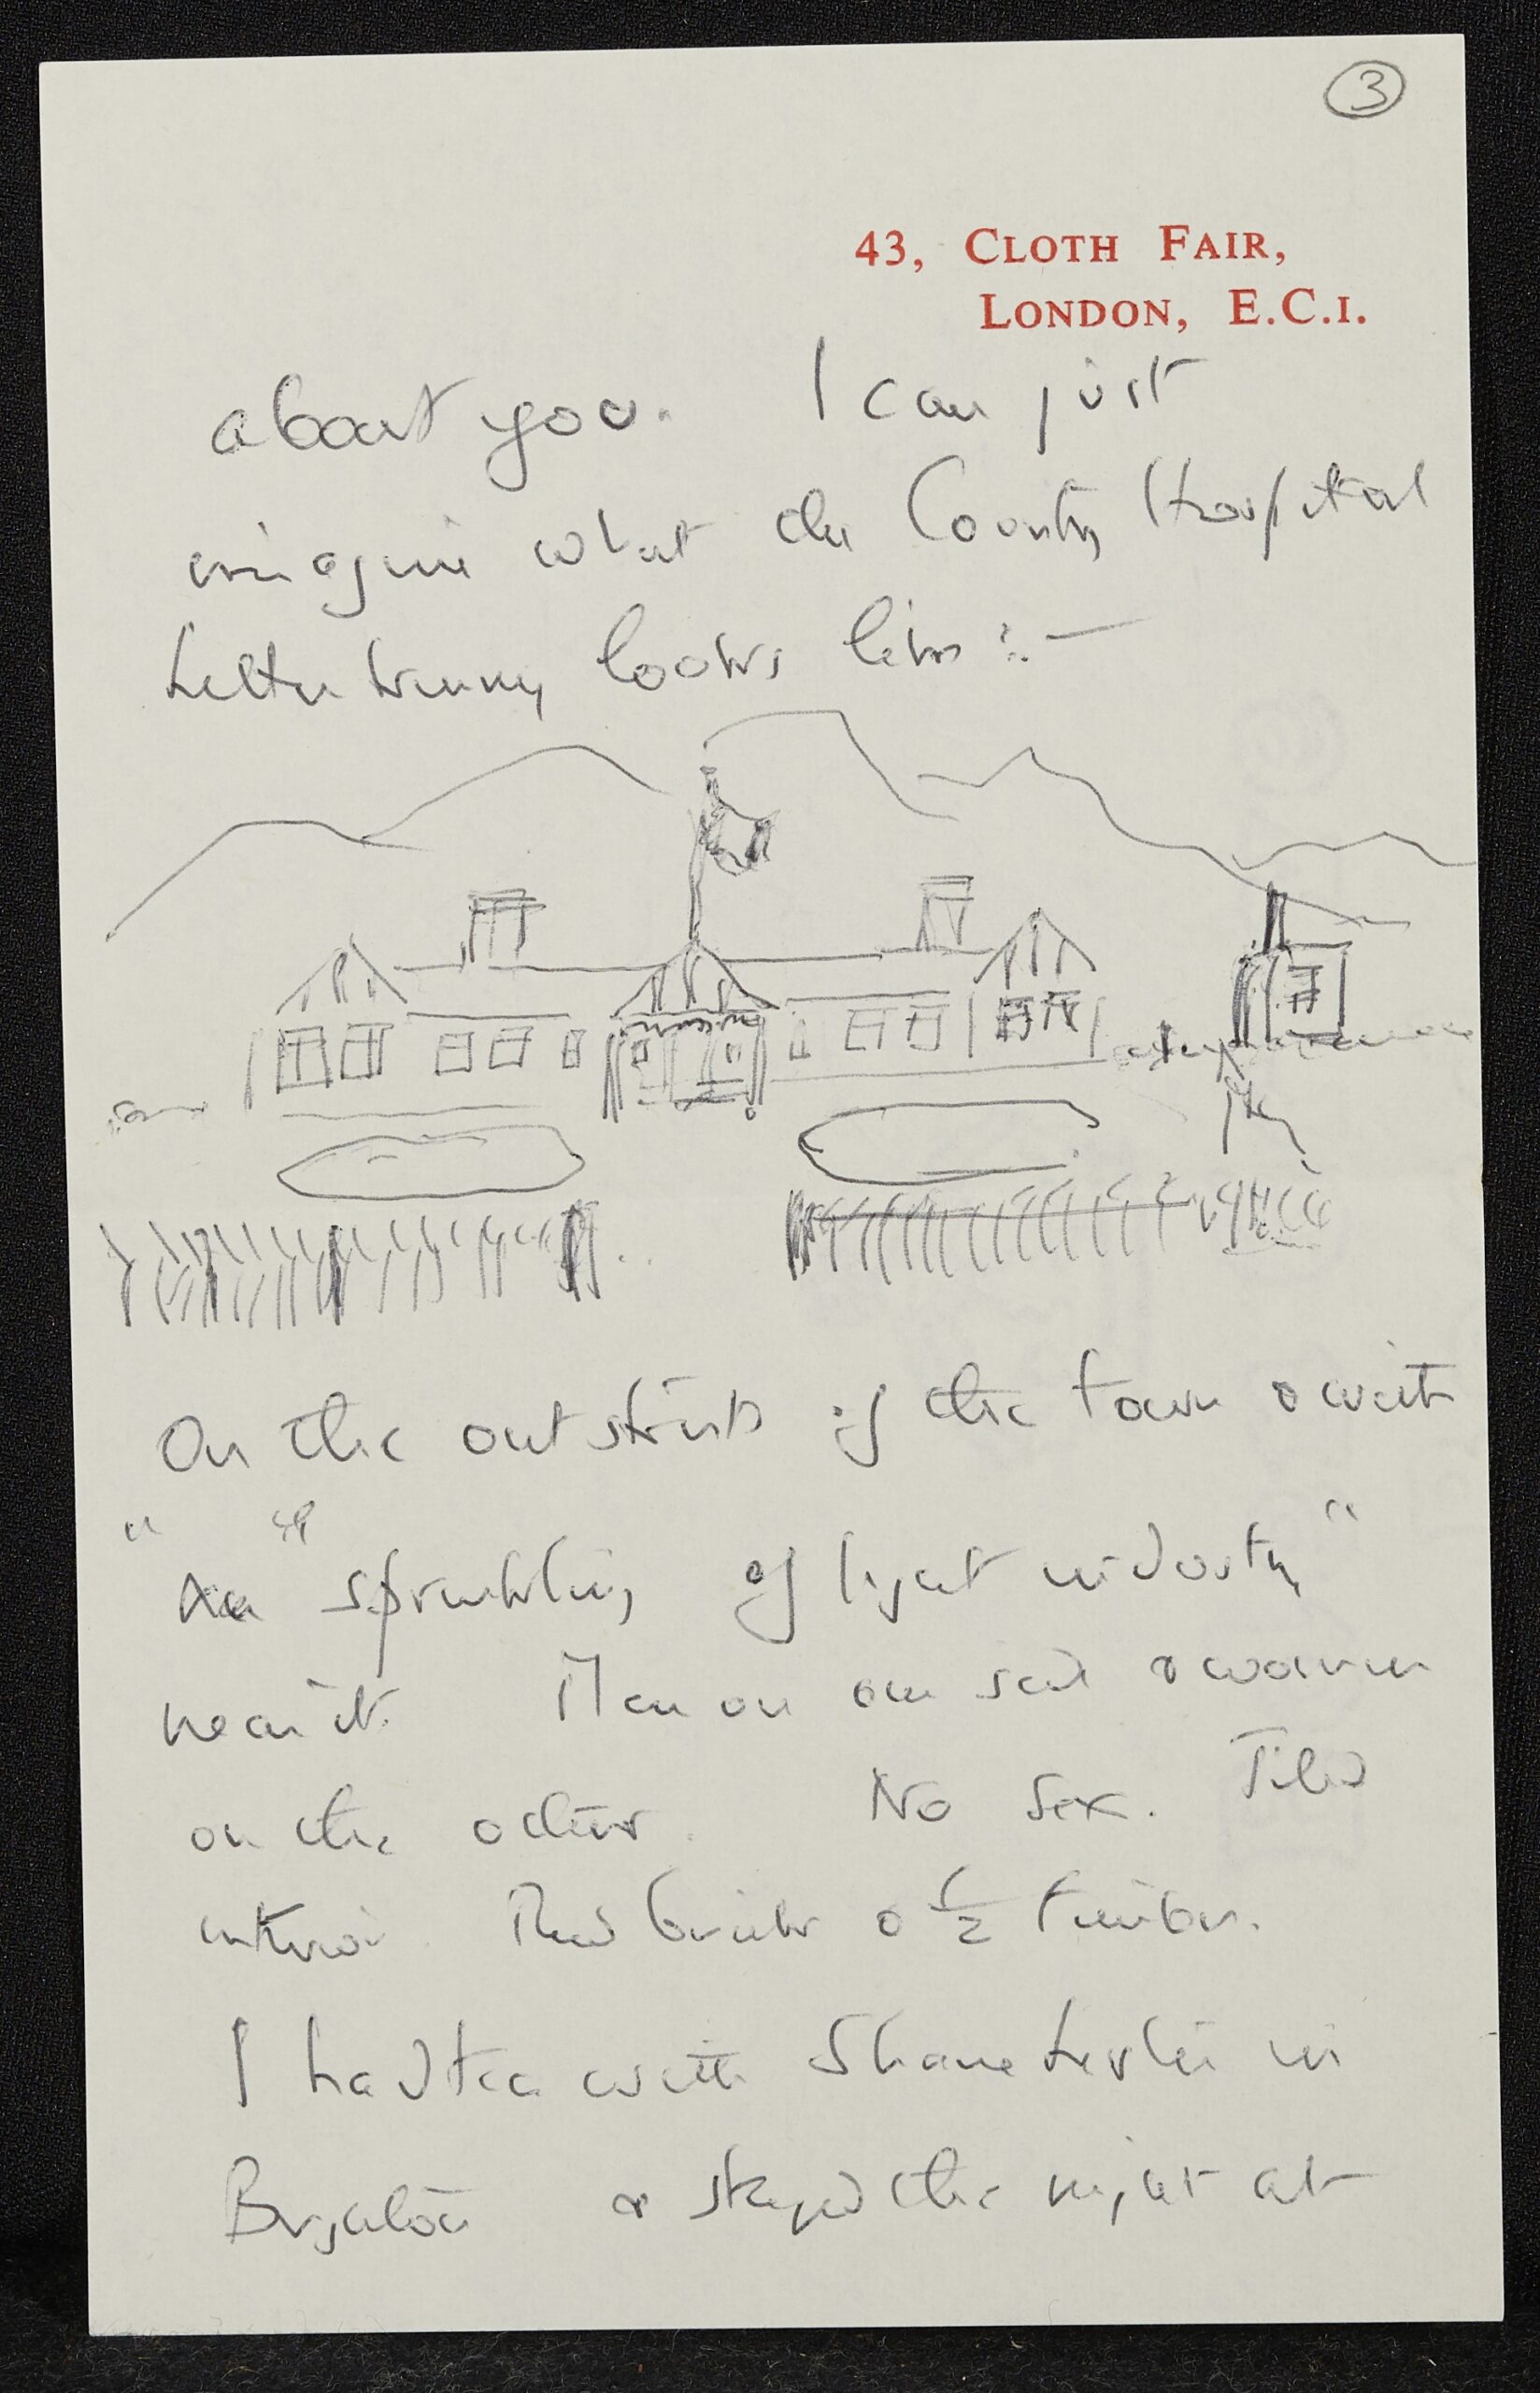 3
43, CLOTH FAIR,
LONDON, E.C.1.
about you. I can just
imagine what the County Hospital
Letterkenny looks like :—
On the outskirts of the town & with
" a
sprinkling of light industry "
near it. Men on one side & women
on the other. No sex. Tiled
interior. Red brick & ½ timber.
I had tea with Shane Leslie in
Brighton & stayed the night at